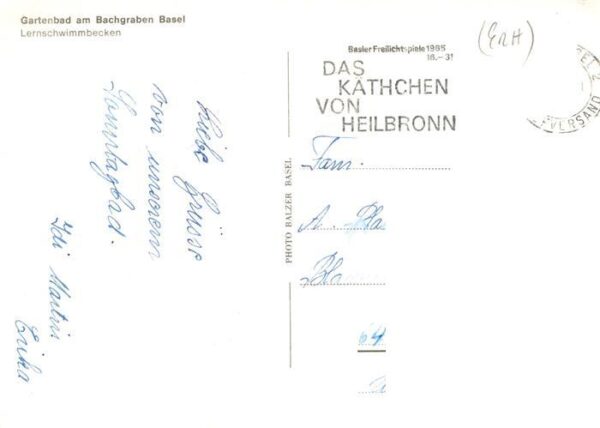 Gartenbad am Bachgraben Basel
Lernschwimmbecken
Liebe Grüsse
von unserem
Sonntagbad.
Idi Martin
Erika
PHOTO BALZER BASEL
Basler Freilichtspiele 1985
16.–31
DAS
KÄTHCHEN
VON
HEILBRONN
(ErH)
VERSAND
2
Fam.
A. Bla
Bla